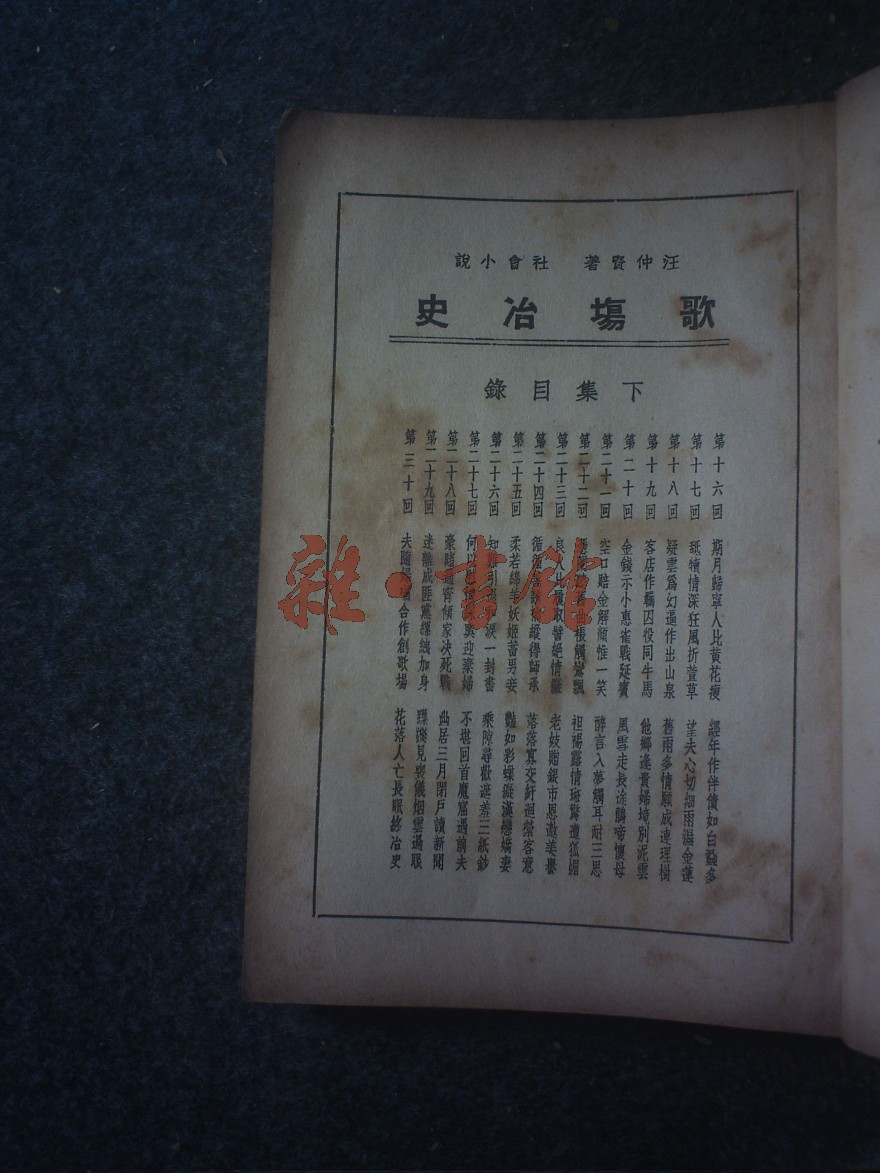 汪仲賢著 社會小說
歌塲冶史
下集目錄
第十六回 期月歸寧人比黄花瘦 經年作伴債如白髮多
第十七回 舐犢情深狂風折萱草 望夫心切細雨濕金蓮
第十八回 疑雲爲幻逼作出山泉 舊雨多情願成連理樹
第十九回 客店作羈囚役同牛馬 他鄉逢貴婦境別泥雲
第二十回 金錢示小惠雀戰延賓 風雪走長途鵑啼懷母
第二十一回 空口賠金解頤惟一笑 醉言入夢觸耳耐三思
第二十二回 袒裼露情斑驚遭狐媚
第二十三回 老妓贈銀市恩邀美譽
第二十四回 循循 得師承 落落寡交紆迴營客意
第二十五回 柔若綿羊妖姬蓄男妾 豔如彩蝶縱漢戀嬌妻
第二十六回 淚一封書 乘隙尋歡遮羞三紙鈔
第二十七回 何以 迎棄婦 不堪回首魔窟遇前夫
第二十八回 豪賭 傾家决死戰 幽居三月閉戶讀新聞
第二十九回 迷離成匪黨縲絏加身 蹀躞見喪儀烟雲過眼
第三十回 夫隨 合作創歌場 花落人亡長眠終冶史
雜·書館